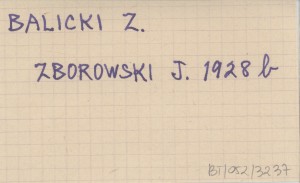 BALICKI Z.
ZBOROWSKI J. 1928 b
BT/052/3237